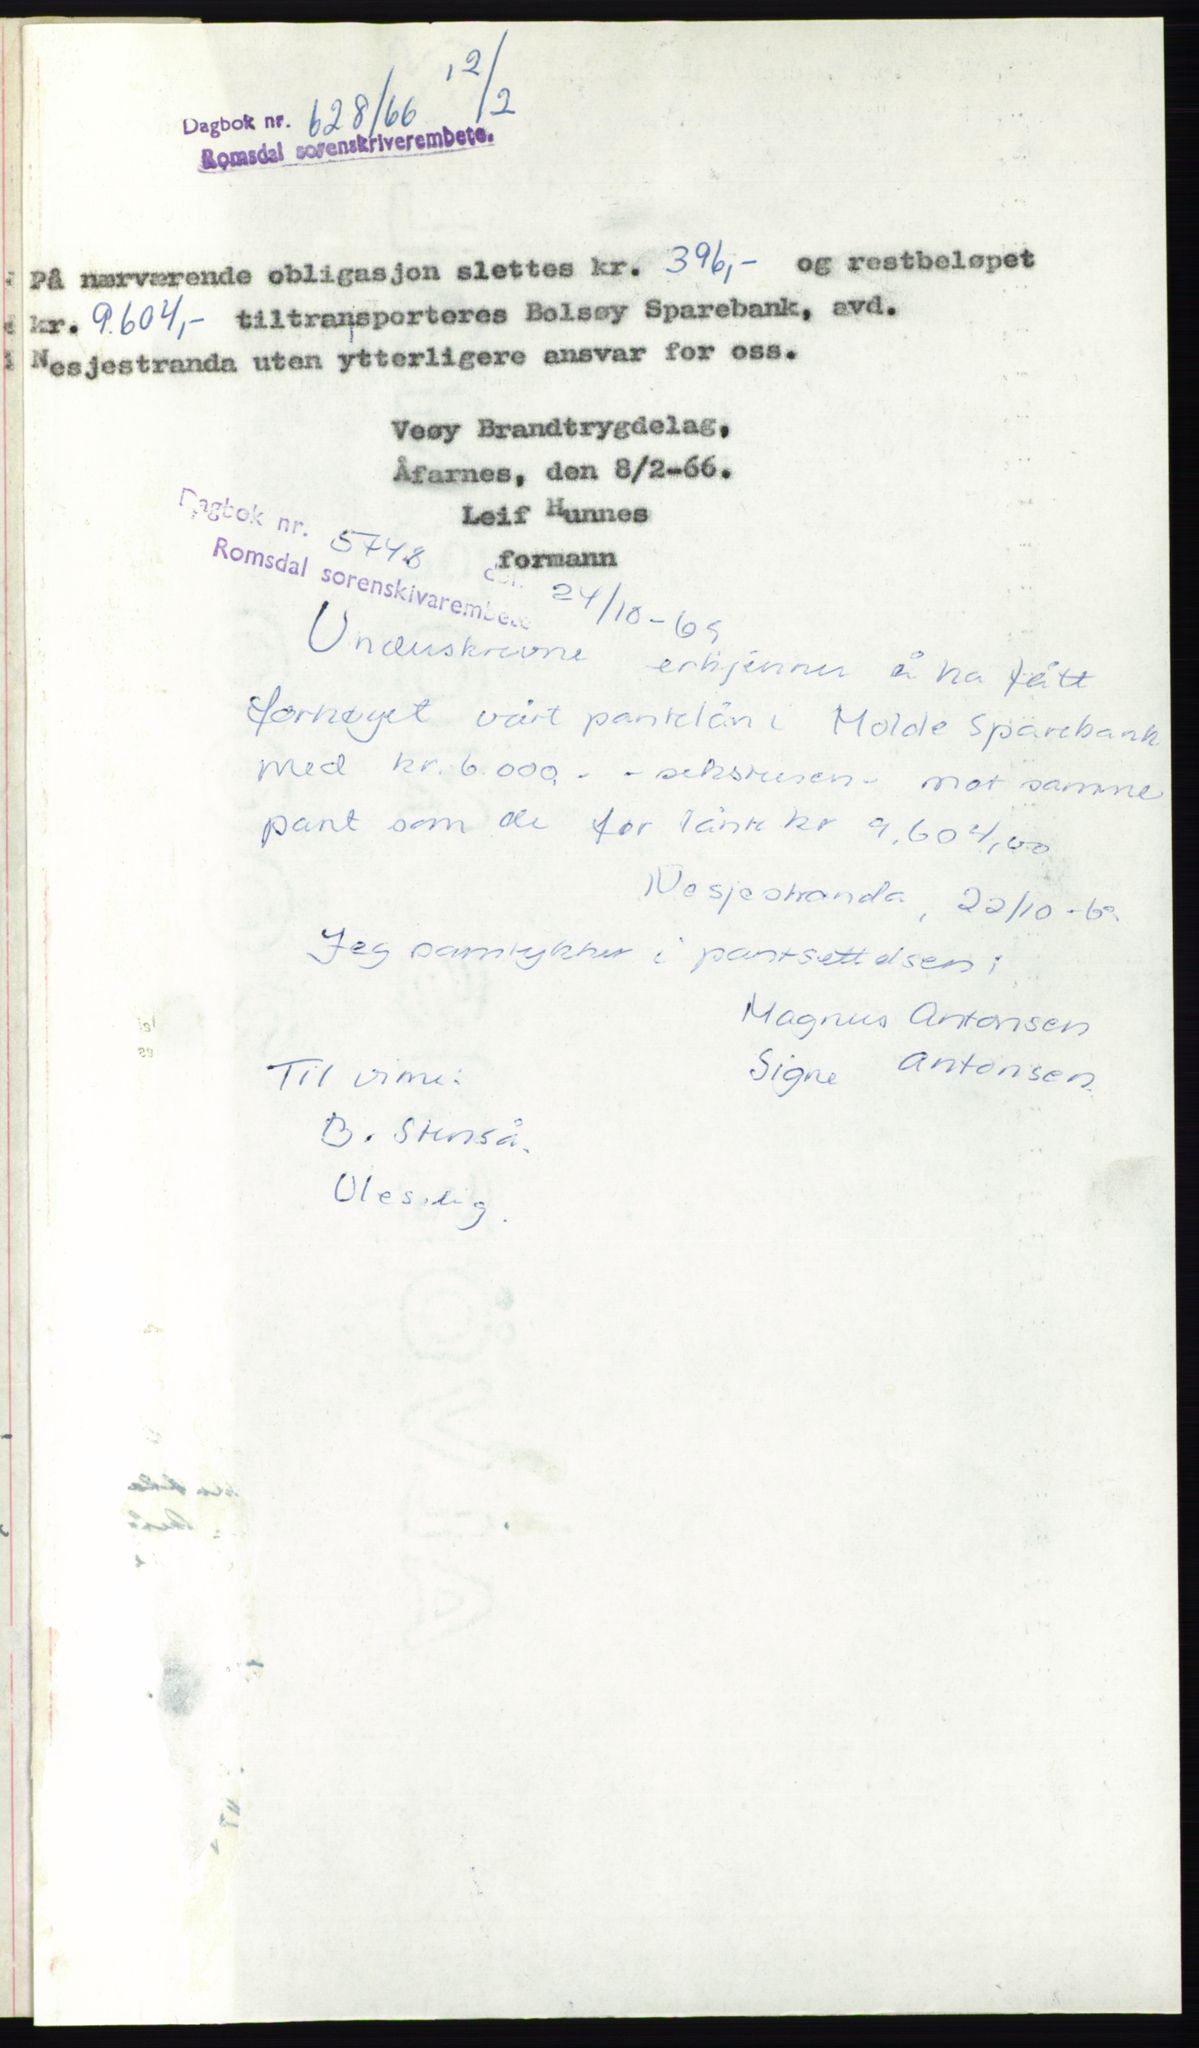 12/2
Dagbok nr. 628/66
Romsdal sorenskriverembete.
På nærværende obligasjon slettes kr. 396,- og restbeløpet
kr. 9.604,- tiltransporteres Bolsøy Sparebank, avd.
Nesjestranda uten ytterligere ansvar for oss.
Veøy Brandtrygdelag,
Åfarnes, den 8/2-66.
Leif Hunnes
formann
Dagbok nr. 5748 24/10-69
Romsdal sorenskivarembete
Underskrevne erkjenner å ha fått
forhøyet vårt pantelån i Molde Sparebank
med kr. 6.000,- - sekstusen- mot samme
pant som de for lånte kr 9.604,00
Nesjestranda, 22/10-69
Jeg samtykker i pantsettelsen;
Magnus Antonsen
Signe Antonsen.
Til vitne:
B. Stenså.
Uleselig.